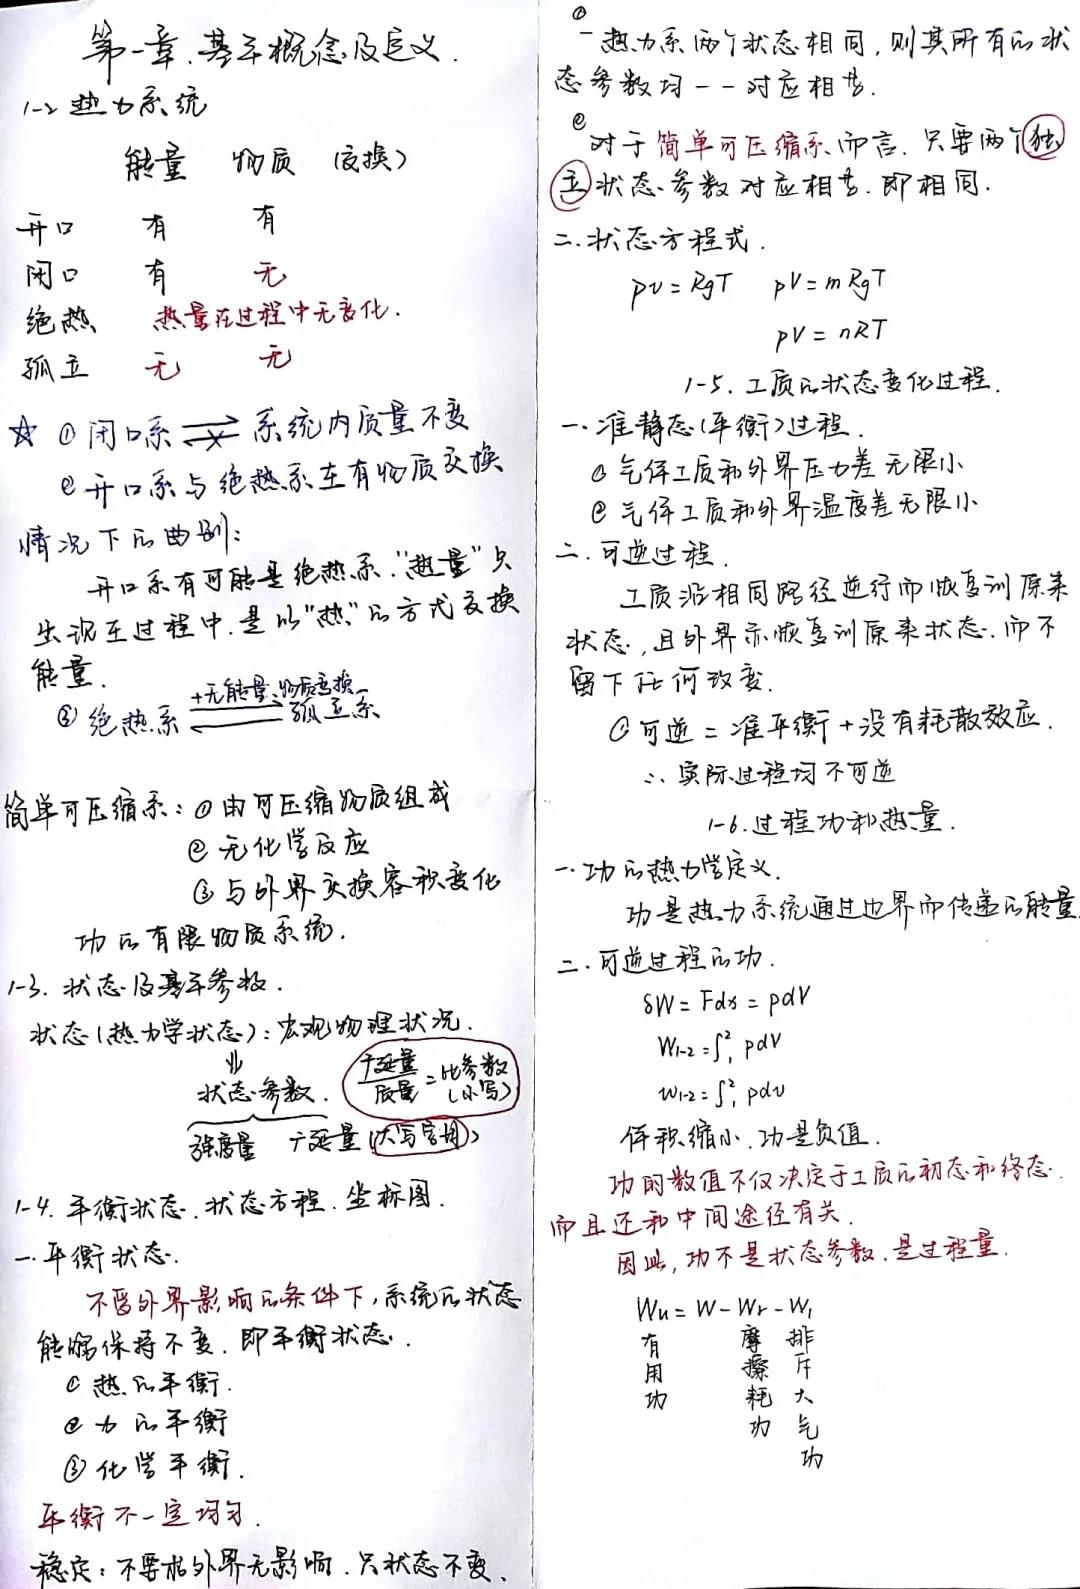 第一章.基本概念及定义.
1-2 热力系统
能量 物质 (交换)
开口 有 有
闭口 有 无
绝热 热量在过程中无变化.
孤立 无 无
☆ ①闭口系 ⇌ 系统内质量不变
②开口系与绝热系在有物质交换
情况下的曲别:
开口系有可能是绝热系."热量"只
出现在过程中.是以"热"的方式交换
能量.
③绝热系 +无能量、物质交换 孤立系
简单可压缩系:①由可压缩物质组成
②无化学反应
③与外界交换容积变化
功的有限物质系统.
1-3.状态及基本参数.
状态(热力学状态):宏观物理状况.
⇓
状态参数. 广延量/质量=比参数(小写)
强度量 广延量(大写字母)
1-4.平衡状态.状态方程.坐标图.
一.平衡状态.
不受外界影响的条件下,系统的状态
能够保持不变.即平衡状态.
①热的平衡.
②力的平衡
③化学平衡.
平衡不一定均匀.
稳定:不要求外界无影响.只状态不变.
①一热力系两个状态相同,则其所有的状
态参数均一一对应相等.
②对于简单可压缩系而言.只要两个独
立状态参数对应相等.即相同.
二.状态方程式.
pv=RgT pV=mRgT
pV=nRT
1-5.工质的状态变化过程.
一.准静态(平衡)过程.
①气体工质和外界压力差无限小
②气体工质和外界温度差无限小
二.可逆过程.
工质沿相同路径逆行而恢复到原来
状态,且外界亦恢复到原来状态.而不
留下任何改变.
①可逆=准平衡+没有耗散效应.
∴实际过程均不可逆
1-6.过程功和热量.
一.功的热力学定义.
功是热力系统通过边界而传递的能量.
二.可逆过程的功.
δW=Fdx=pdV
W₁₋₂=∫₁² pdV
w₁₋₂=∫₁² pdv
体积缩小.功是负值.
功的数值不仅决定于工质的初态和终态.
而且还和中间途径有关.
因此,功不是状态参数.是过程量.
Wu=W-Wr-W₁
有用功 摩擦耗功 排斥大气功